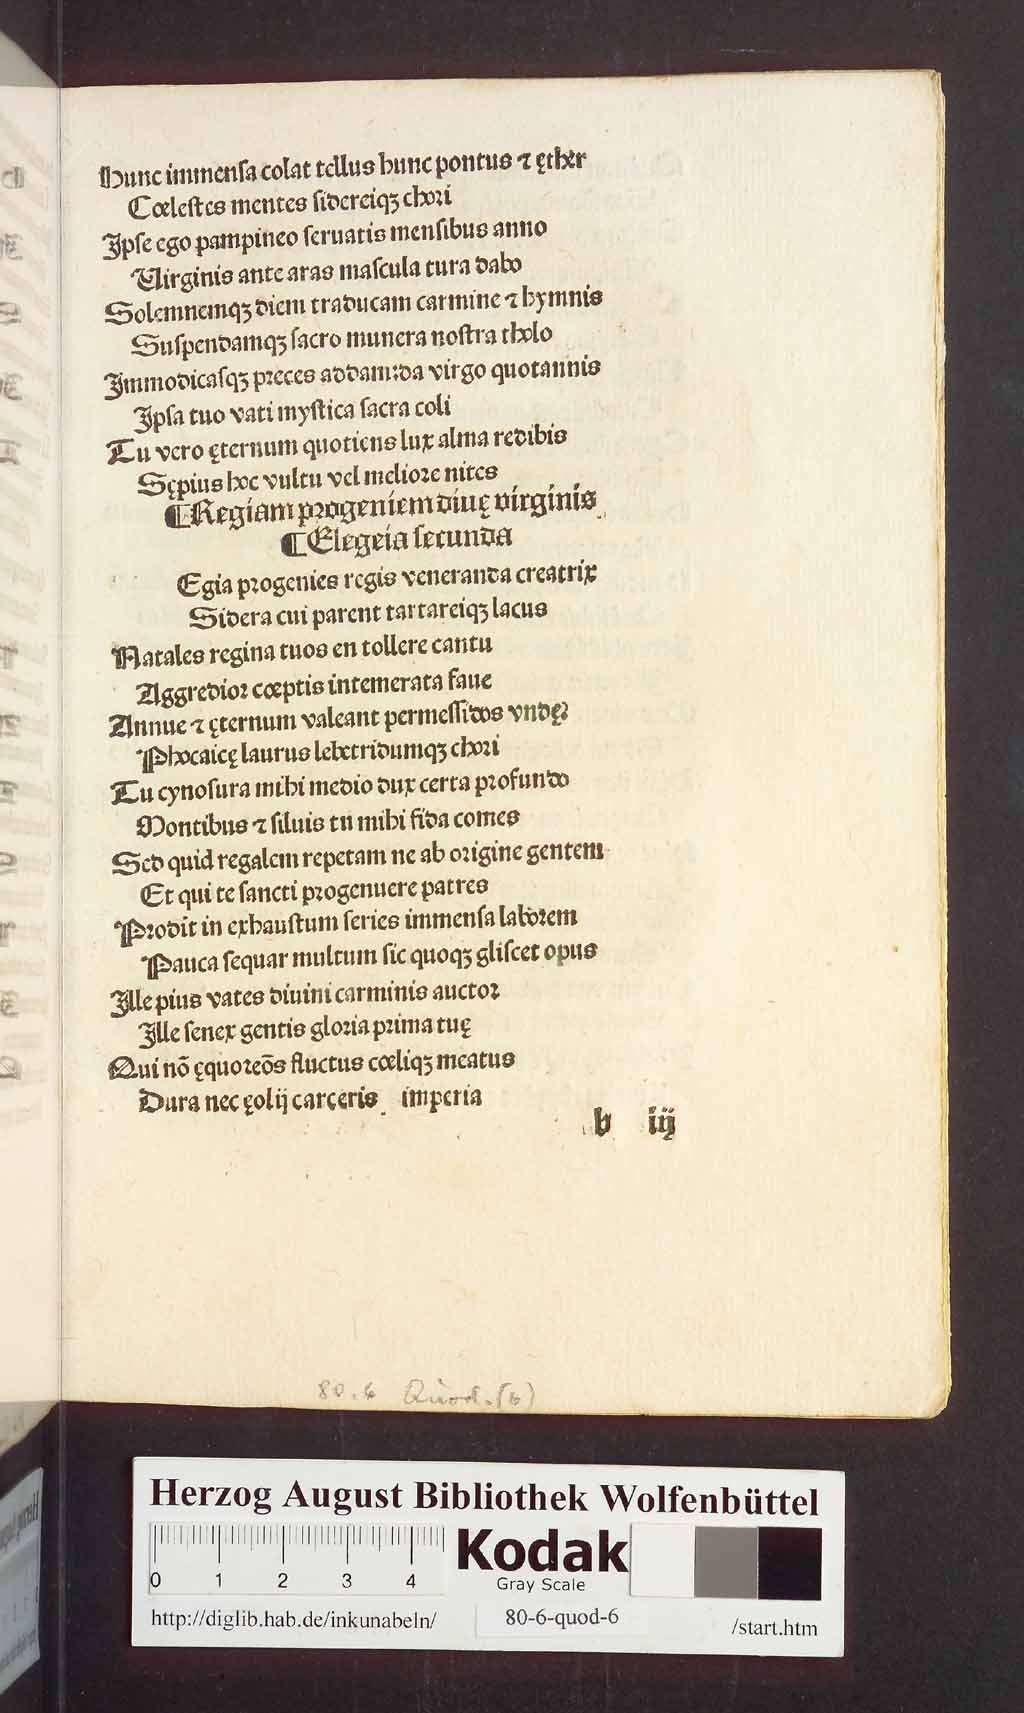 Hunc immensa colat tellus hunc pontus ⁊ ęther
Cœlestes mentes sidereiqꝫ chori
Ipse ego pampineo seruatis mensibus anno
Virginis ante aras mascula tura dabo
Solemnemqꝫ diem traducam carmine ⁊ hymnis
Suspendamqꝫ sacro munera nostra tholo
Immodicasqꝫ preces addam:da virgo quotannis
Ipsa tuo vati mystica sacra coli
Tu vero ęternum quotiens lux alma redibis
Sępius hoc vultu vel meliore nites
¶Regiam progeniem diuę virginis
¶Elegeia secunda
Egia progenies regis veneranda creatrix
Sidera cui parent tartareiqꝫ lacus
Natales regina tuos en tollere cantu
Aggredior cœptis intemerata faue
Annue ⁊ ęternum valeant permessidos vndę
Phocaicę laurus lebetridumqꝫ chori
Tu cynosura mihi medio dux certa profundo
Montibus ⁊ siluis tu mihi fida comes
Sed quid regalem repetam ne ab origine gentem
Et qui te sancti progenuere patres
Prodit in exhaustum series immensa laborem
Pauca sequar multum sic quoqꝫ gliscet opus
Ille pius vates diuini carminis auctor
Ille senex gentis gloria prima tuę
Qui nō ęquoreōs fluctus cœliqꝫ meatus
Dura nec ęolij carceris imperia
b iij
80.6 Quod.(6)
Herzog August Bibliothek Wolfenbüttel
0 1 2 3 4
Kodak
Gray Scale
http://diglib.hab.de/inkunabeln/ 80-6-quod-6 /start.htm